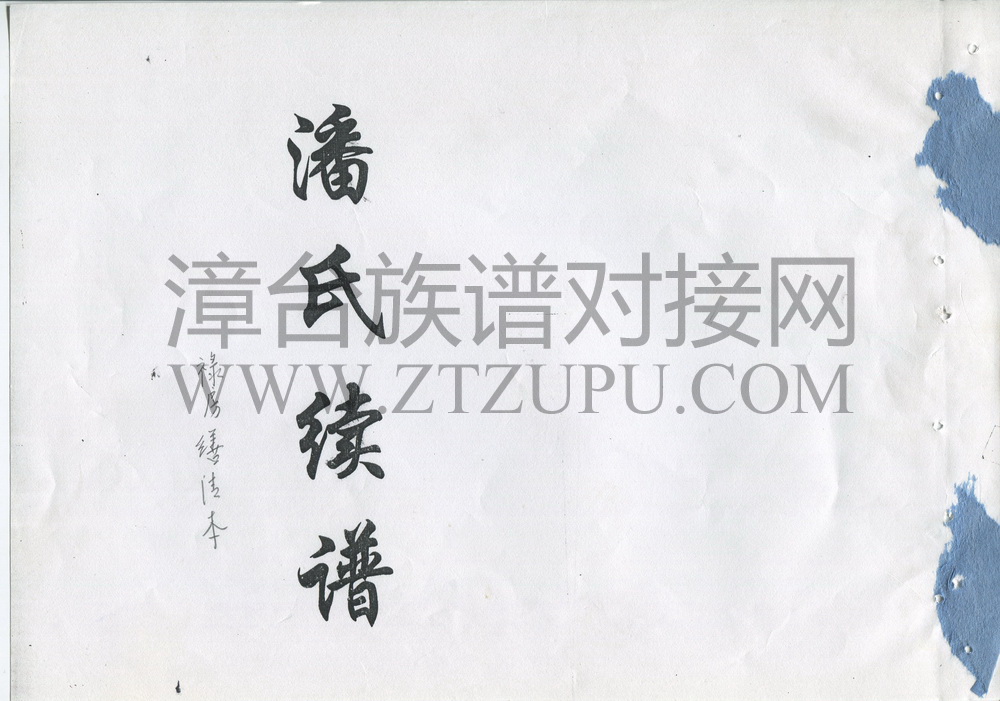 潘氏续谱
禄房缮清本
漳台族谱对接网
WWW.ZTZUPU.COM